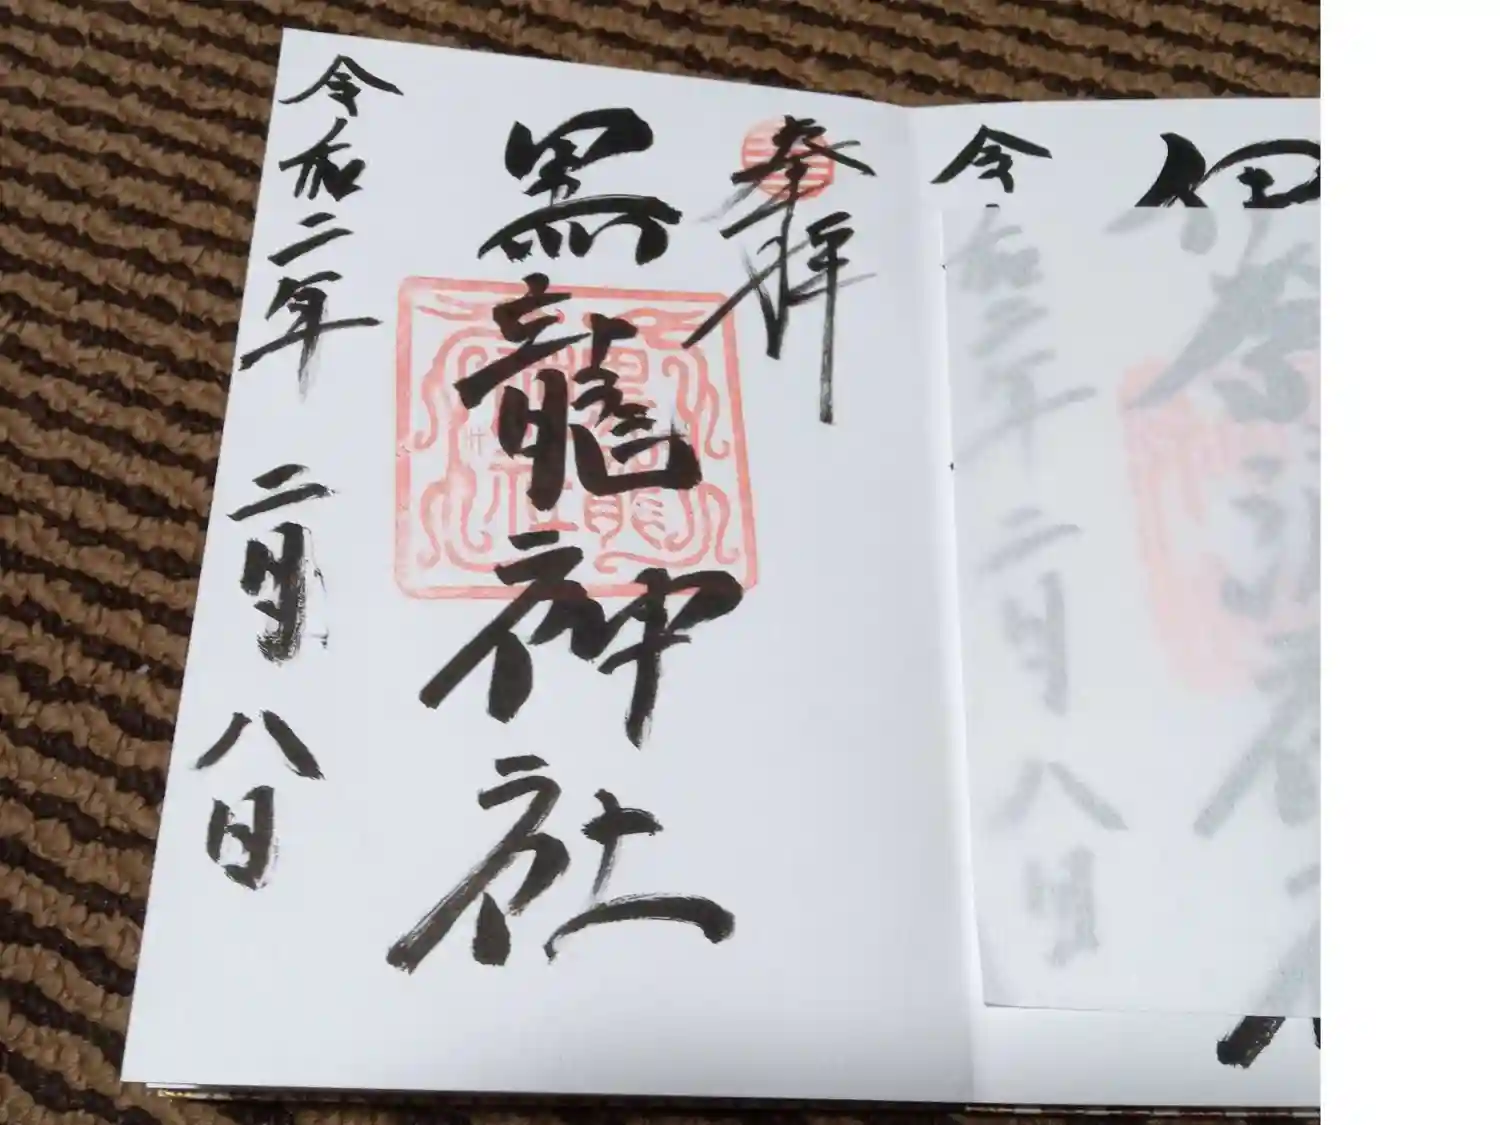 奉拝
黒龍神社
令和二年 二月 八日
伊
令和二年 二月 八日